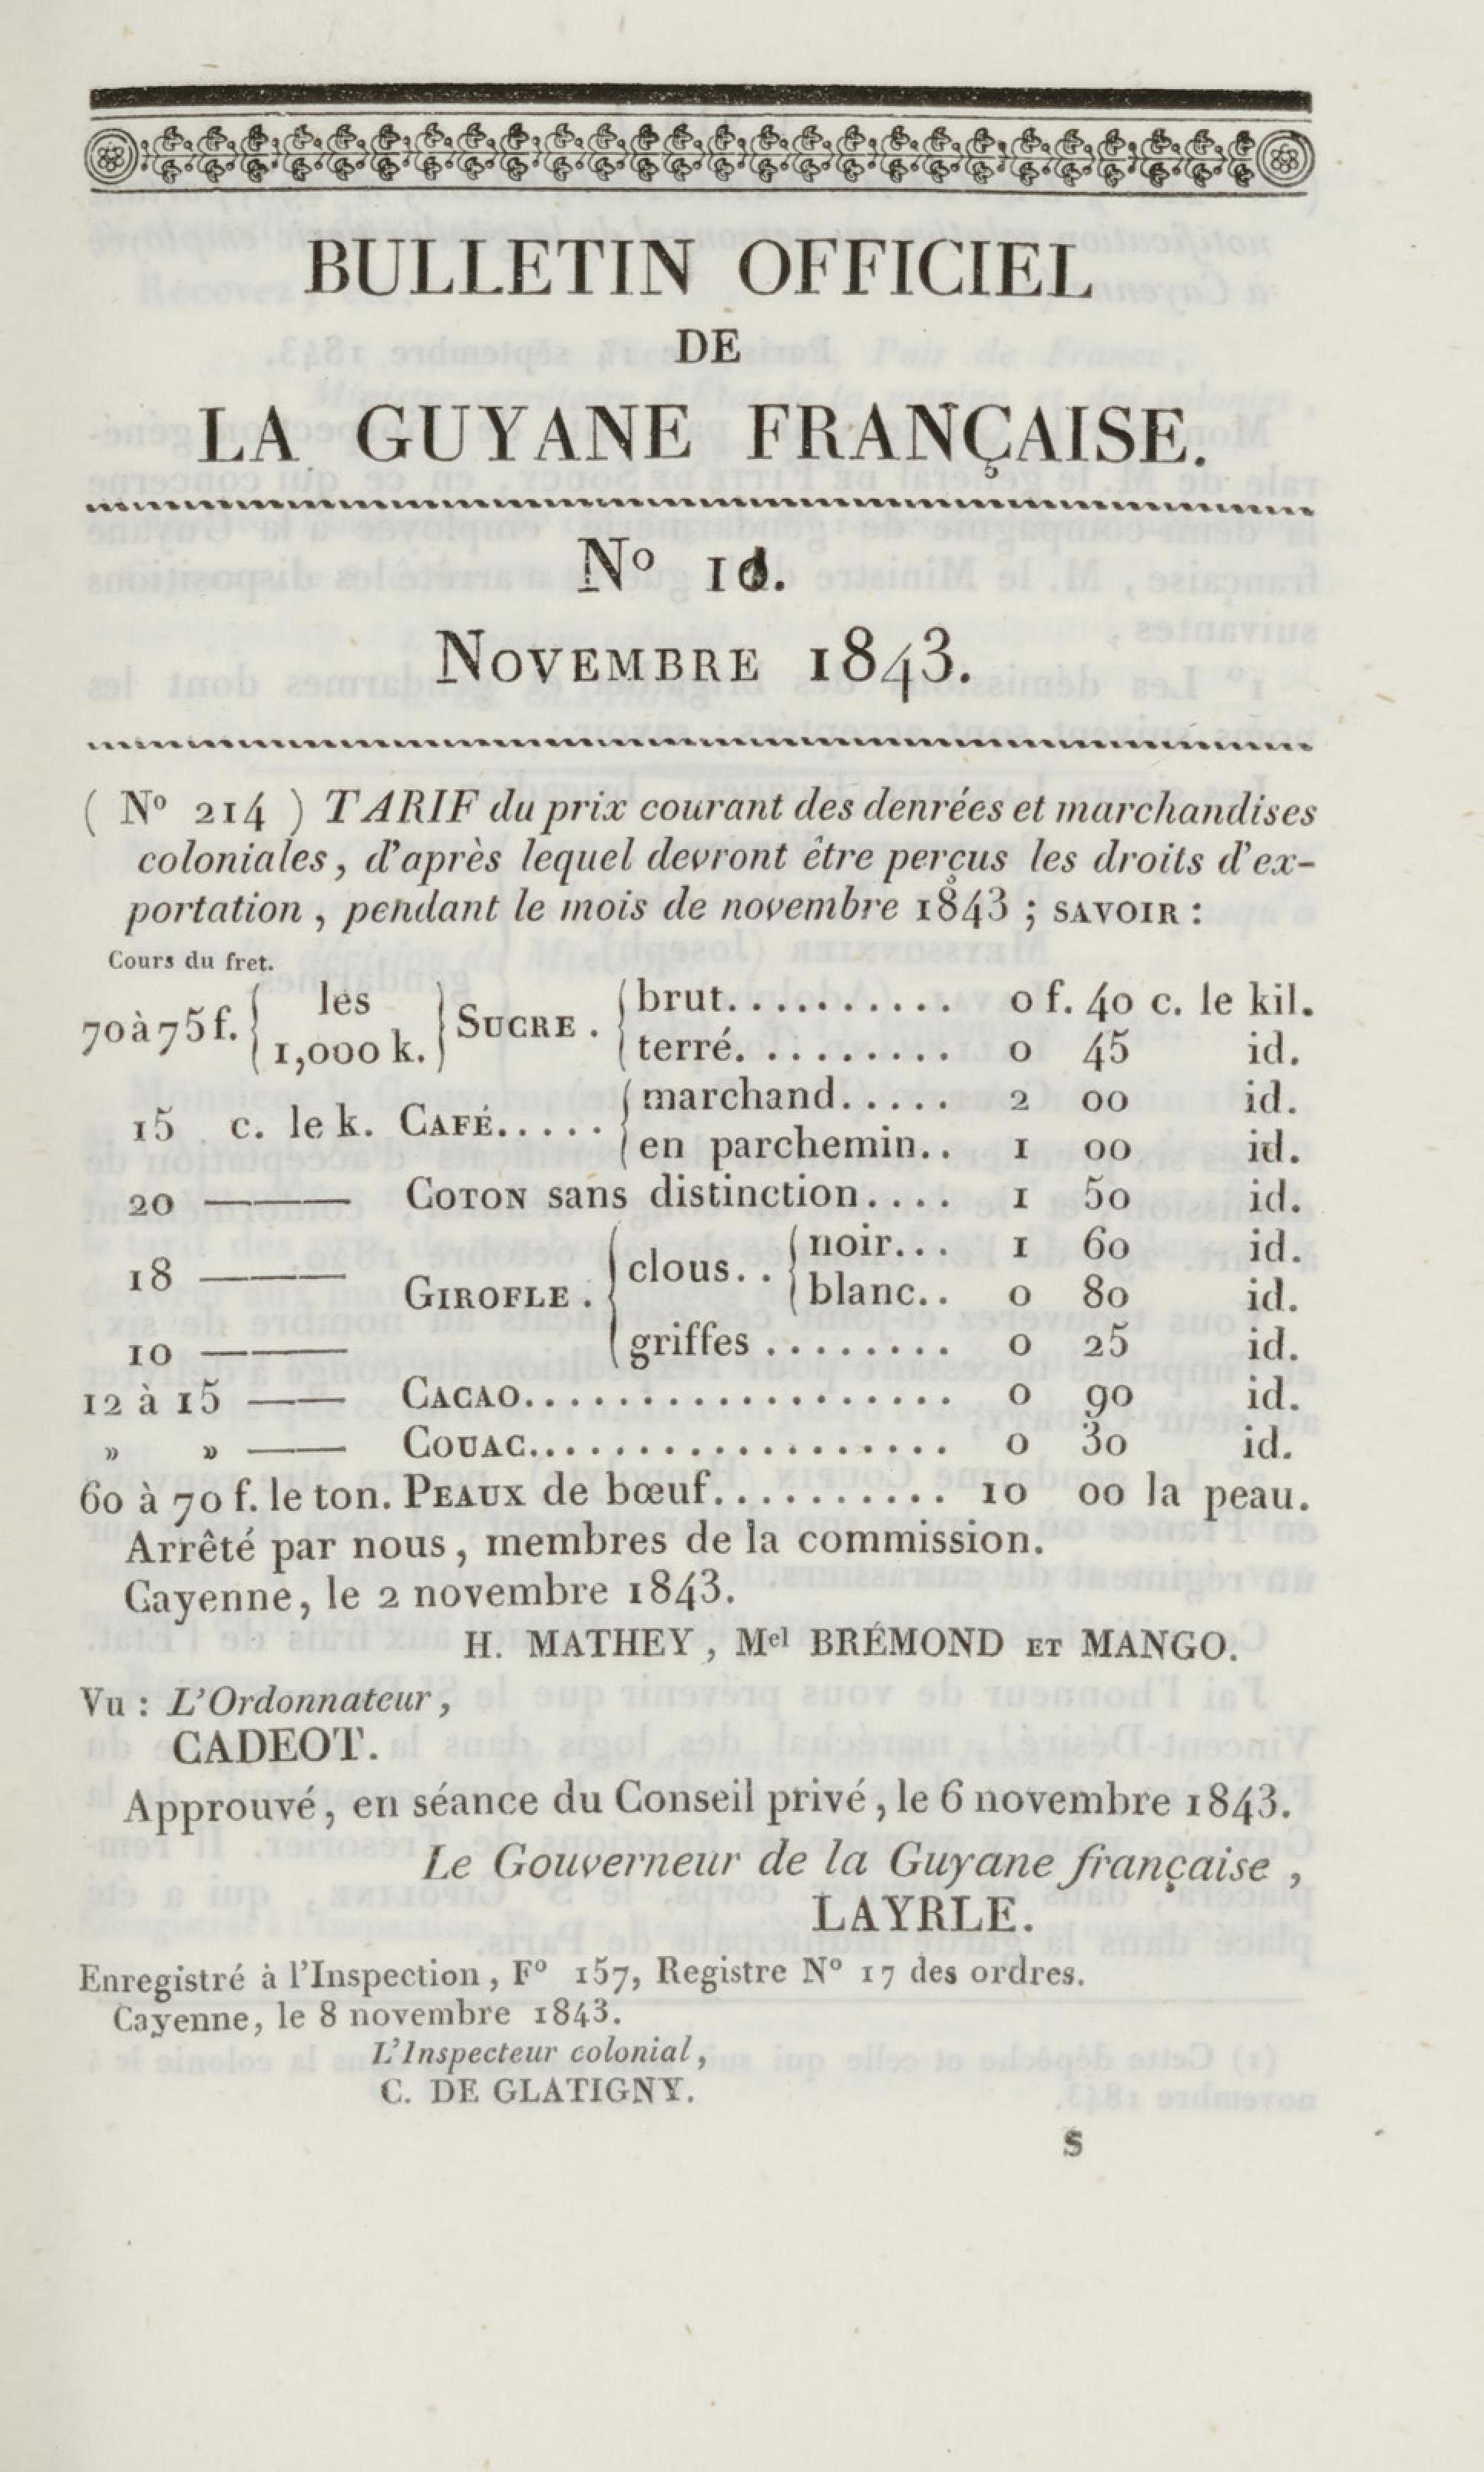 BULLETIN OFFICIEL
DE
LA GUYANE FRANÇAISE.
Nº
NOVEMBRE 1843.
( Nº 214 ) TARIF du prix courant des denrées et marchandises
coloniales, d'après lequel devront être perçus les droits d'ex-
portation, pendant le mois de novembre 1843 ; SAVOIR :
Cours du fret.
70 à 75 f. { les 1,000 k. } SUCRE . { brut.......... 0 f. 40 c. le kil.
terré.......... 0 45 id.
15 c. le k. CAFÉ..... { marchand..... 2 00 id.
en parchemin.. 1 00 id.
20 ——— COTON sans distinction.... 1 50 id.
18 ——— GIROFLE . { clous.. { noir... 1 60 id.
blanc.. 0 80 id.
10 ——— griffes ........ 0 25 id.
12 à 15 —— CACAO.................. 0 90 id.
» » —— COUAC.................. 0 30 id.
60 à 70 f. le ton. PEAUX de bœuf.......... 10 00 la peau.
Arrêté par nous, membres de la commission.
Cayenne, le 2 novembre 1843.
H. MATHEY, Mel BRÉMOND ET MANGO.
Vu : L'Ordonnateur,
CADEOT.
Approuvé, en séance du Conseil privé, le 6 novembre 1843.
Le Gouverneur de la Guyane française,
LAYRLE.
Enregistré à l'Inspection, Fº 157, Registre Nº 17 des ordres.
Cayenne, le 8 novembre 1843.
L'Inspecteur colonial,
C. DE GLATIGNY.
S